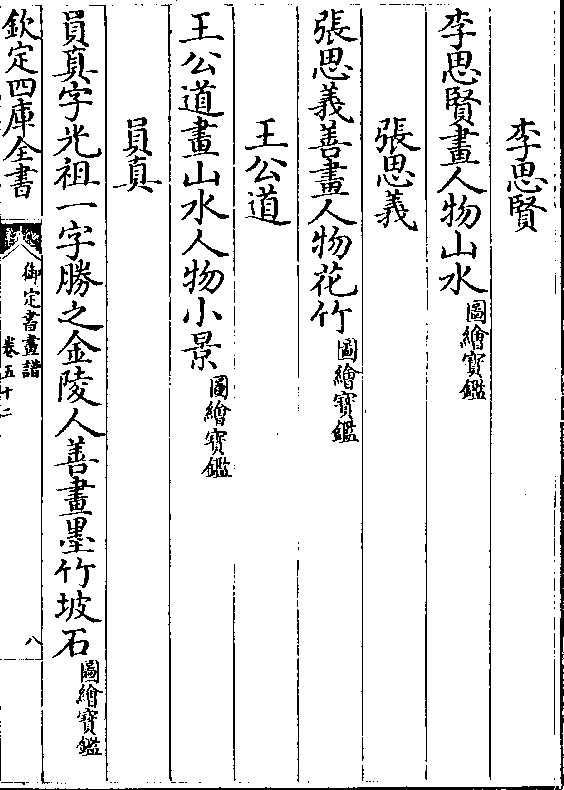 李思賢
李思賢畫人物山水圖繪寶鑑
張思義
張思義善畫人物花竹圖繪寶鑑
王公道
王公道畫山水人物小景圖繪寶鑑
員真
員真字光祖一字勝之金陵人善畫墨竹坡石圖繪寶鑑
欽定四庫全書
御定書畫譜
卷五十二
八